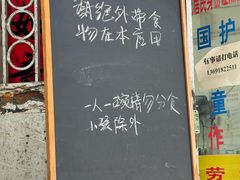 谢绝外带食
物在本店用
一人一碗请勿分食
小孩除外
国
护
童
作
劳
有事请打电话
13691822511